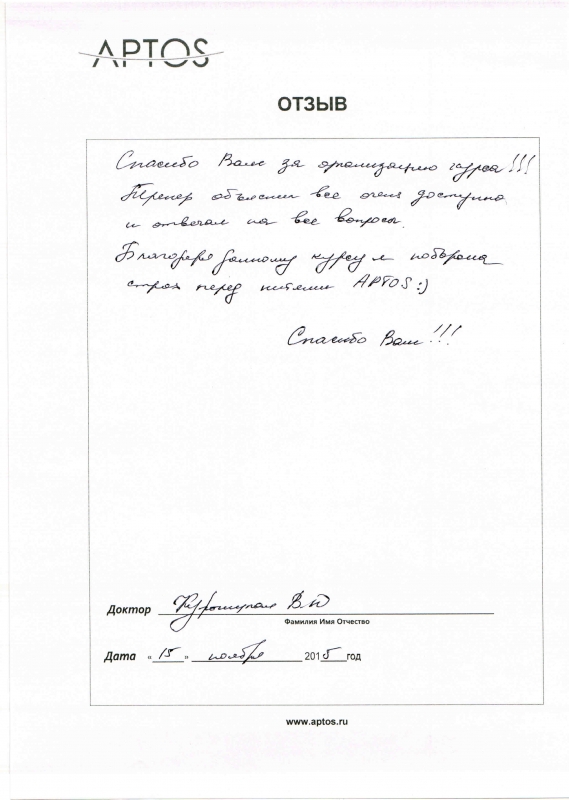 APTOS
ОТЗЫВ
Спасибо Вам за организацию курса!!!
Тренер объяснил все очень доступно
и отвечал на все вопросы.
Благодаря данному курсу я поборола
страх перед нитями APTOS :)
Спасибо Вам!!!
Доктор В.Ю
Фамилия Имя Отчество
Дата «15» ноября 2015 год
www.aptos.ru